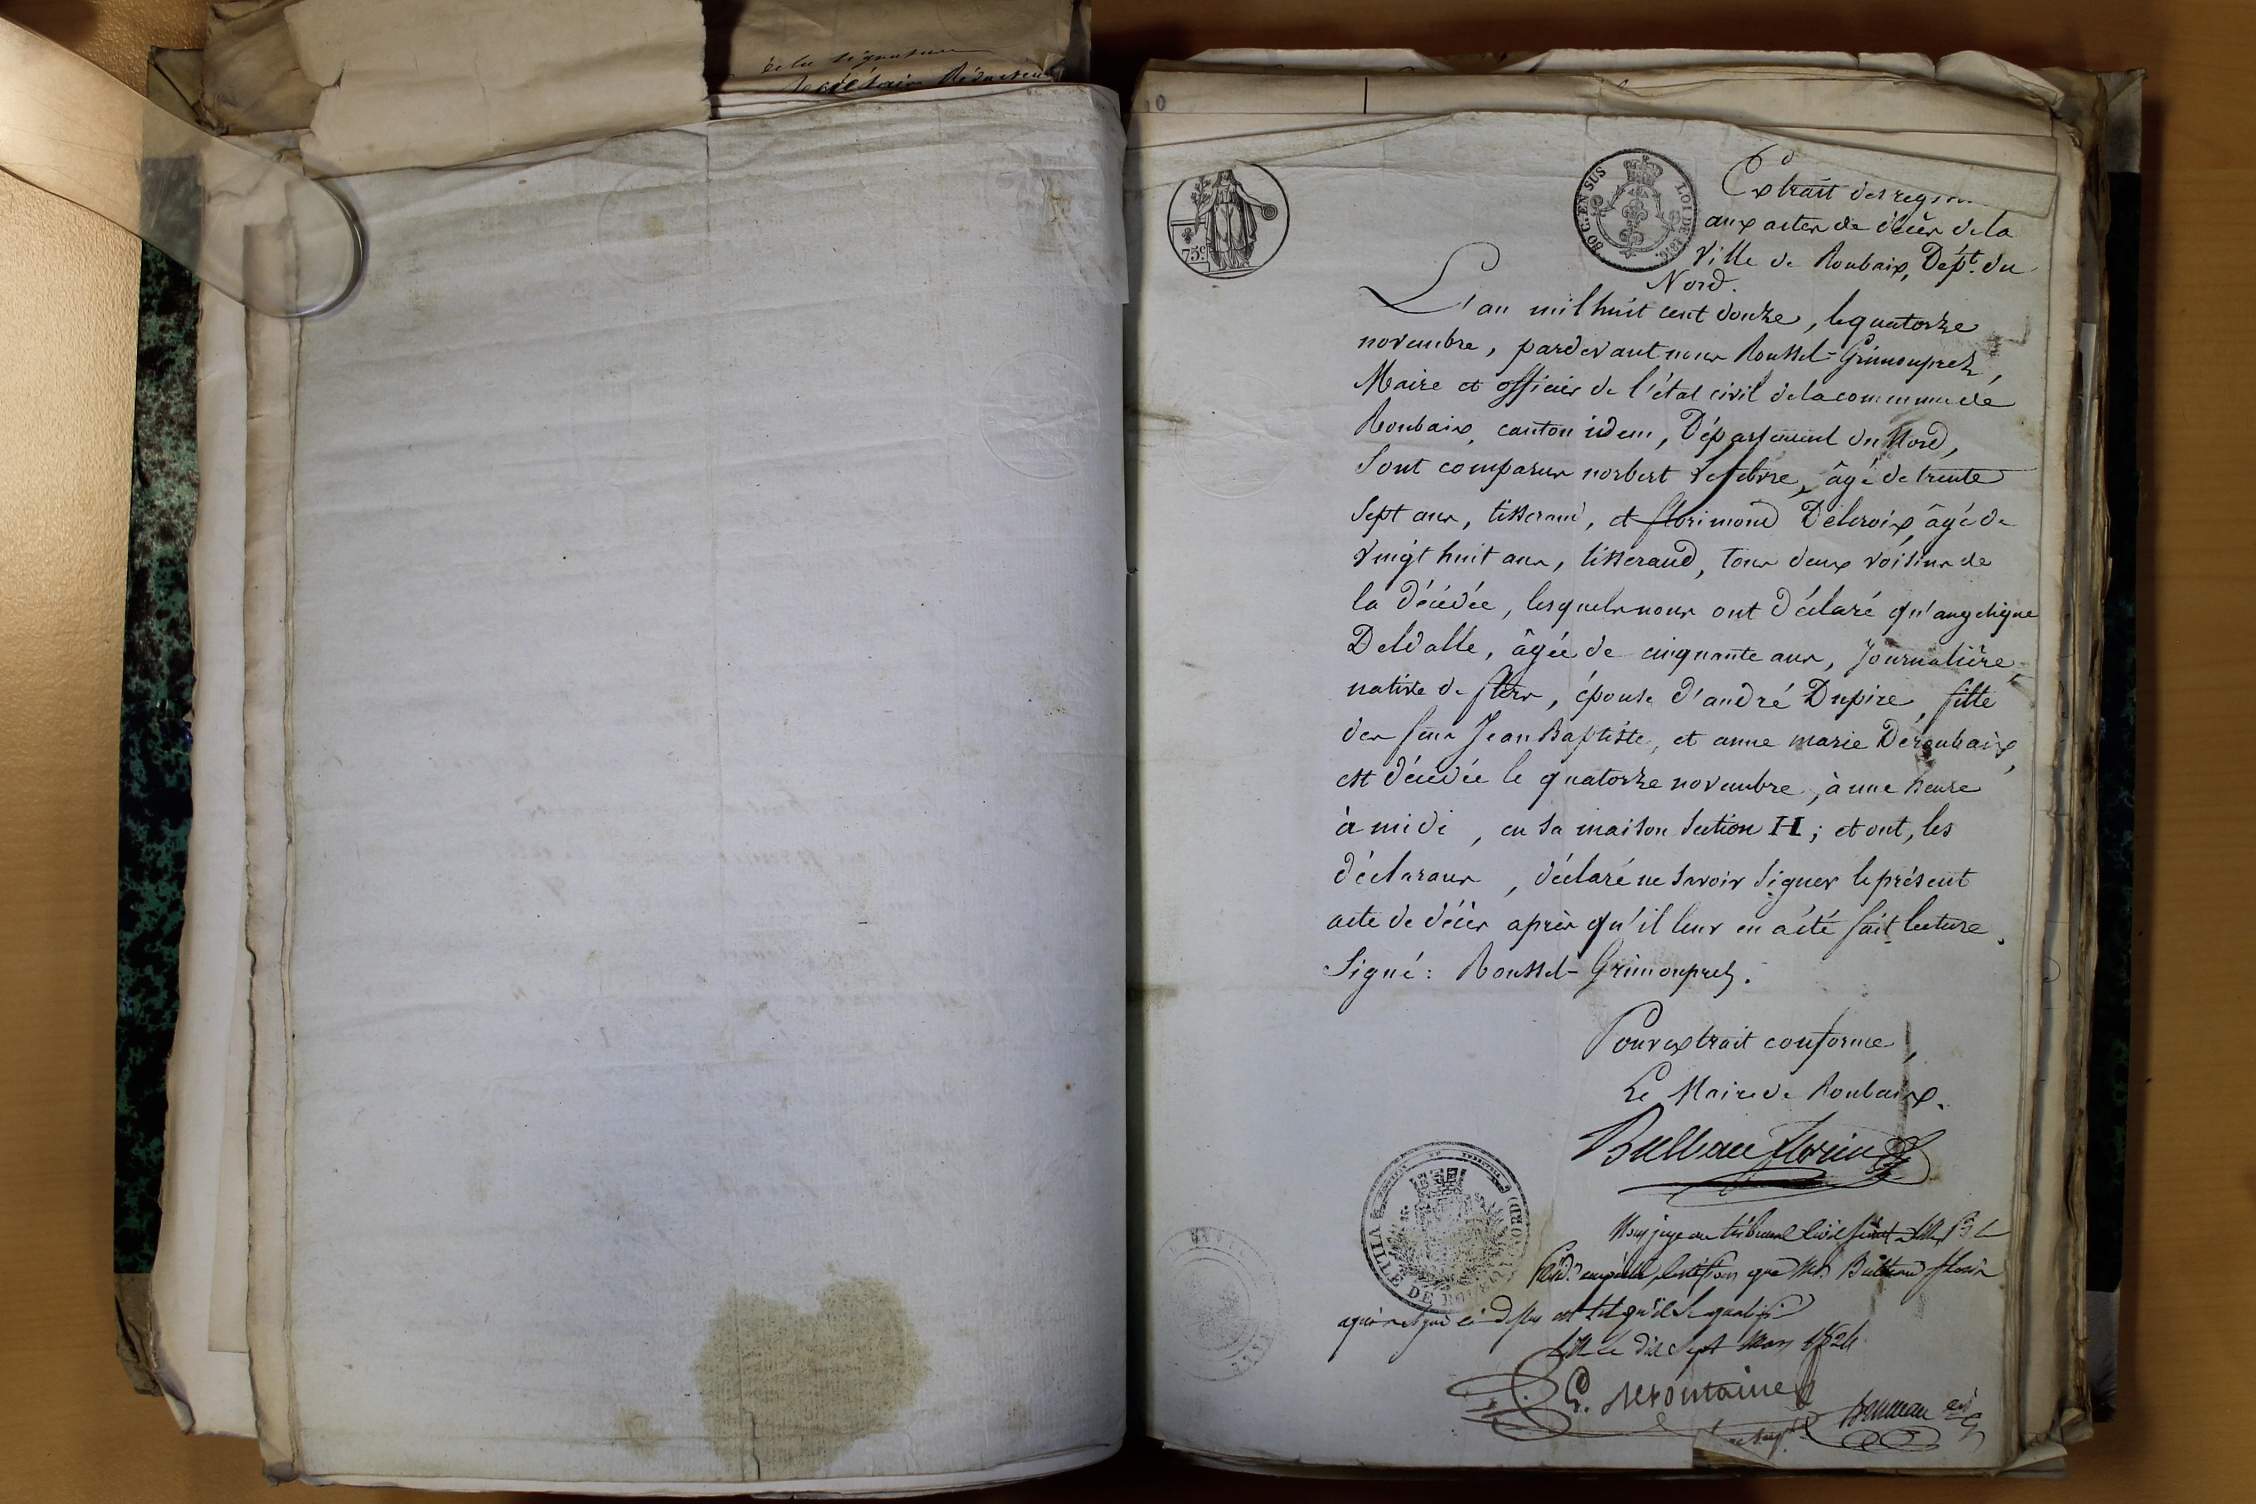 de la signature
Secrétaire Rédacteur
10
75c
50 C. EN SUS
LOI DE 1816.
Extrait des
aux actes de décès de la
Ville de Roubaix, Dépt. du
Nord.
L'an mil huit cent douze, le quatorze
novembre, pardevant nous Roussel-Grimonprez,
Maire et officier de l'état civil de la commune de
Roubaix, canton idem, Département du Nord,
Sont comparus norbert Lefebvre, âgé de trente
sept ans, tisserand, et florimond Delcroix, âgé de
vingt huit ans, tisserand, tous deux voisins de
la décédée, lesquels nous ont déclaré qu'angelique
Deldalle, âgée de cinquante ans, Journalière,
native de flers, épouse d'andré Dupire, fille
des feus Jean Baptiste, et anne marie Deroubaix,
est décédée le quatorze novembre, à une heure
à midi, en sa maison Section H; et ont, les
déclarans, déclaré ne savoir signer le présent
acte de décès après qu'il leur en a été fait lecture.
Signé: Roussel-Grimonprez.
Pour extrait conforme,
Le Maire de Roubaix.
Bulteau florin
VILLE DE ROUBAIX (NORD)
Nous juge au tribunal Civil séant à Lille
empêché, certifions que Mr. Bulteau florin
qui a signé ci dessus est tel qu'il se qualifie
Lille ce dix sept Mars 1824